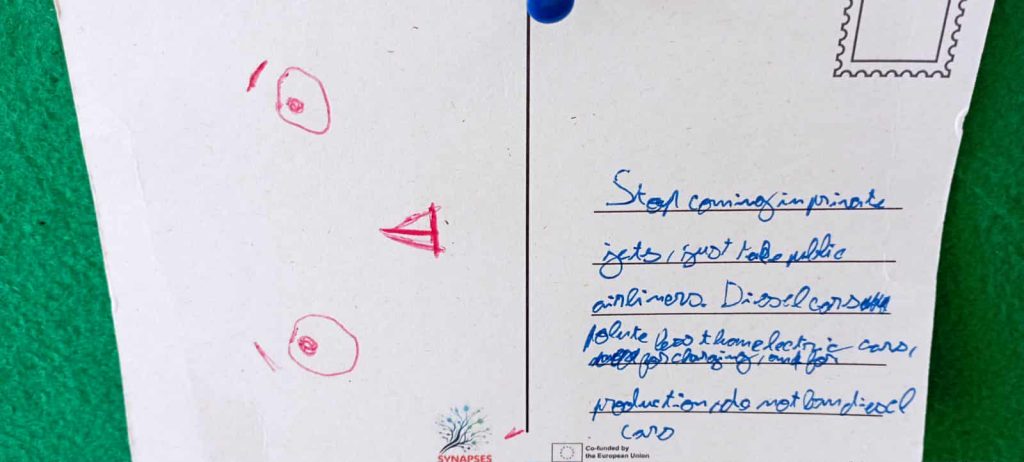 Stop coming in private
jets, just take public
airliners. Diesel cars
polute less than electric cars,
for charging, and for
production, do not ban diesel
cars
SYNAPSES
Co-funded by
the European Union